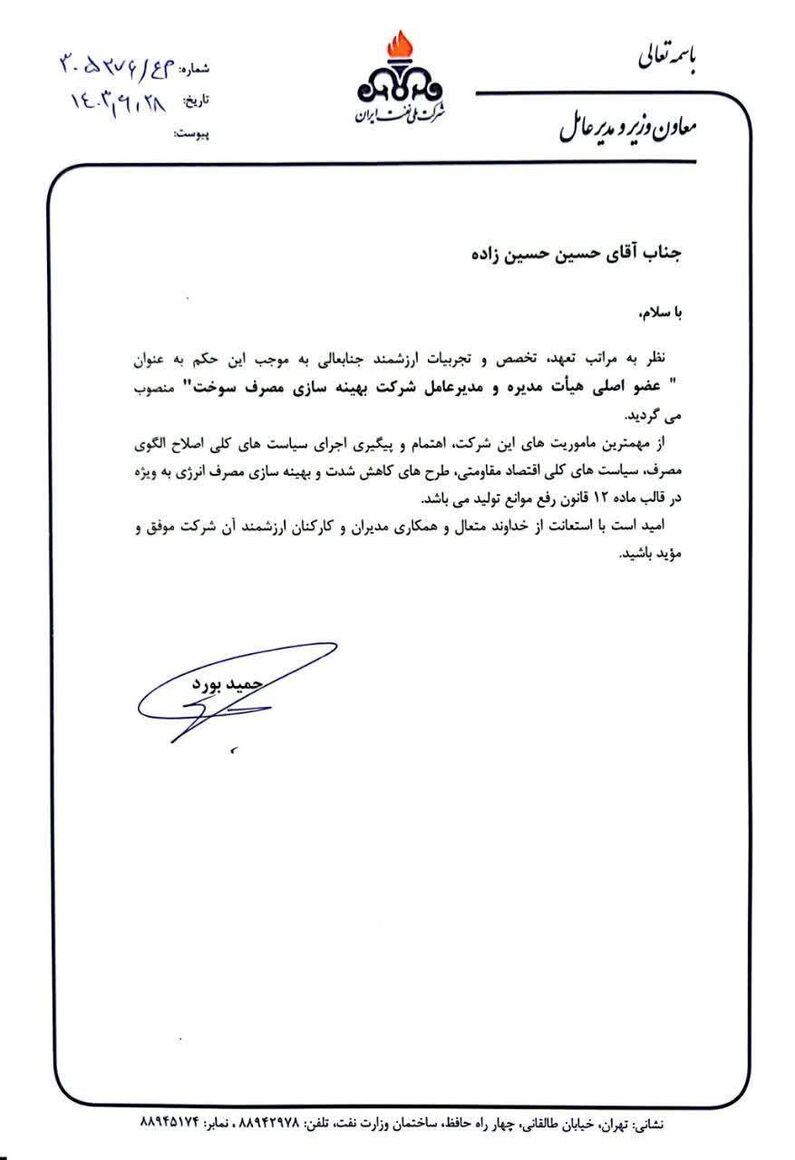 باسمه تعالی
شرکت ملی نفت ایران
معاون وزیر و مدیر عامل
شماره: ۳۰۵۲۷۶/ع م
تاریخ: ۱۴۰۳٫۹٫۲۸
پیوست:
جناب آقای حسین حسین زاده
با سلام،
نظر به مراتب تعهد، تخصص و تجربیات ارزشمند جنابعالی به موجب این حکم به عنوان
" عضو اصلی هیأت مدیره و مدیرعامل شرکت بهینه سازی مصرف سوخت" منصوب
می گردید.
از مهمترین ماموریت های این شرکت، اهتمام و پیگیری اجرای سیاست های کلی اصلاح الگوی
مصرف، سیاست های کلی اقتصاد مقاومتی، طرح های کاهش شدت و بهینه سازی مصرف انرژی به ویژه
در قالب ماده ۱۲ قانون رفع موانع تولید می باشد.
امید است با استعانت از خداوند متعال و همکاری مدیران و کارکنان ارزشمند آن شرکت موفق و
مؤید باشید.
حمید بورد
نشانی: تهران، خیابان طالقانی، چهار راه حافظ، ساختمان وزارت نفت، تلفن: ۸۸۹۴۲۹۷۸ ، نمابر: ۸۸۹۴۵۱۷۴